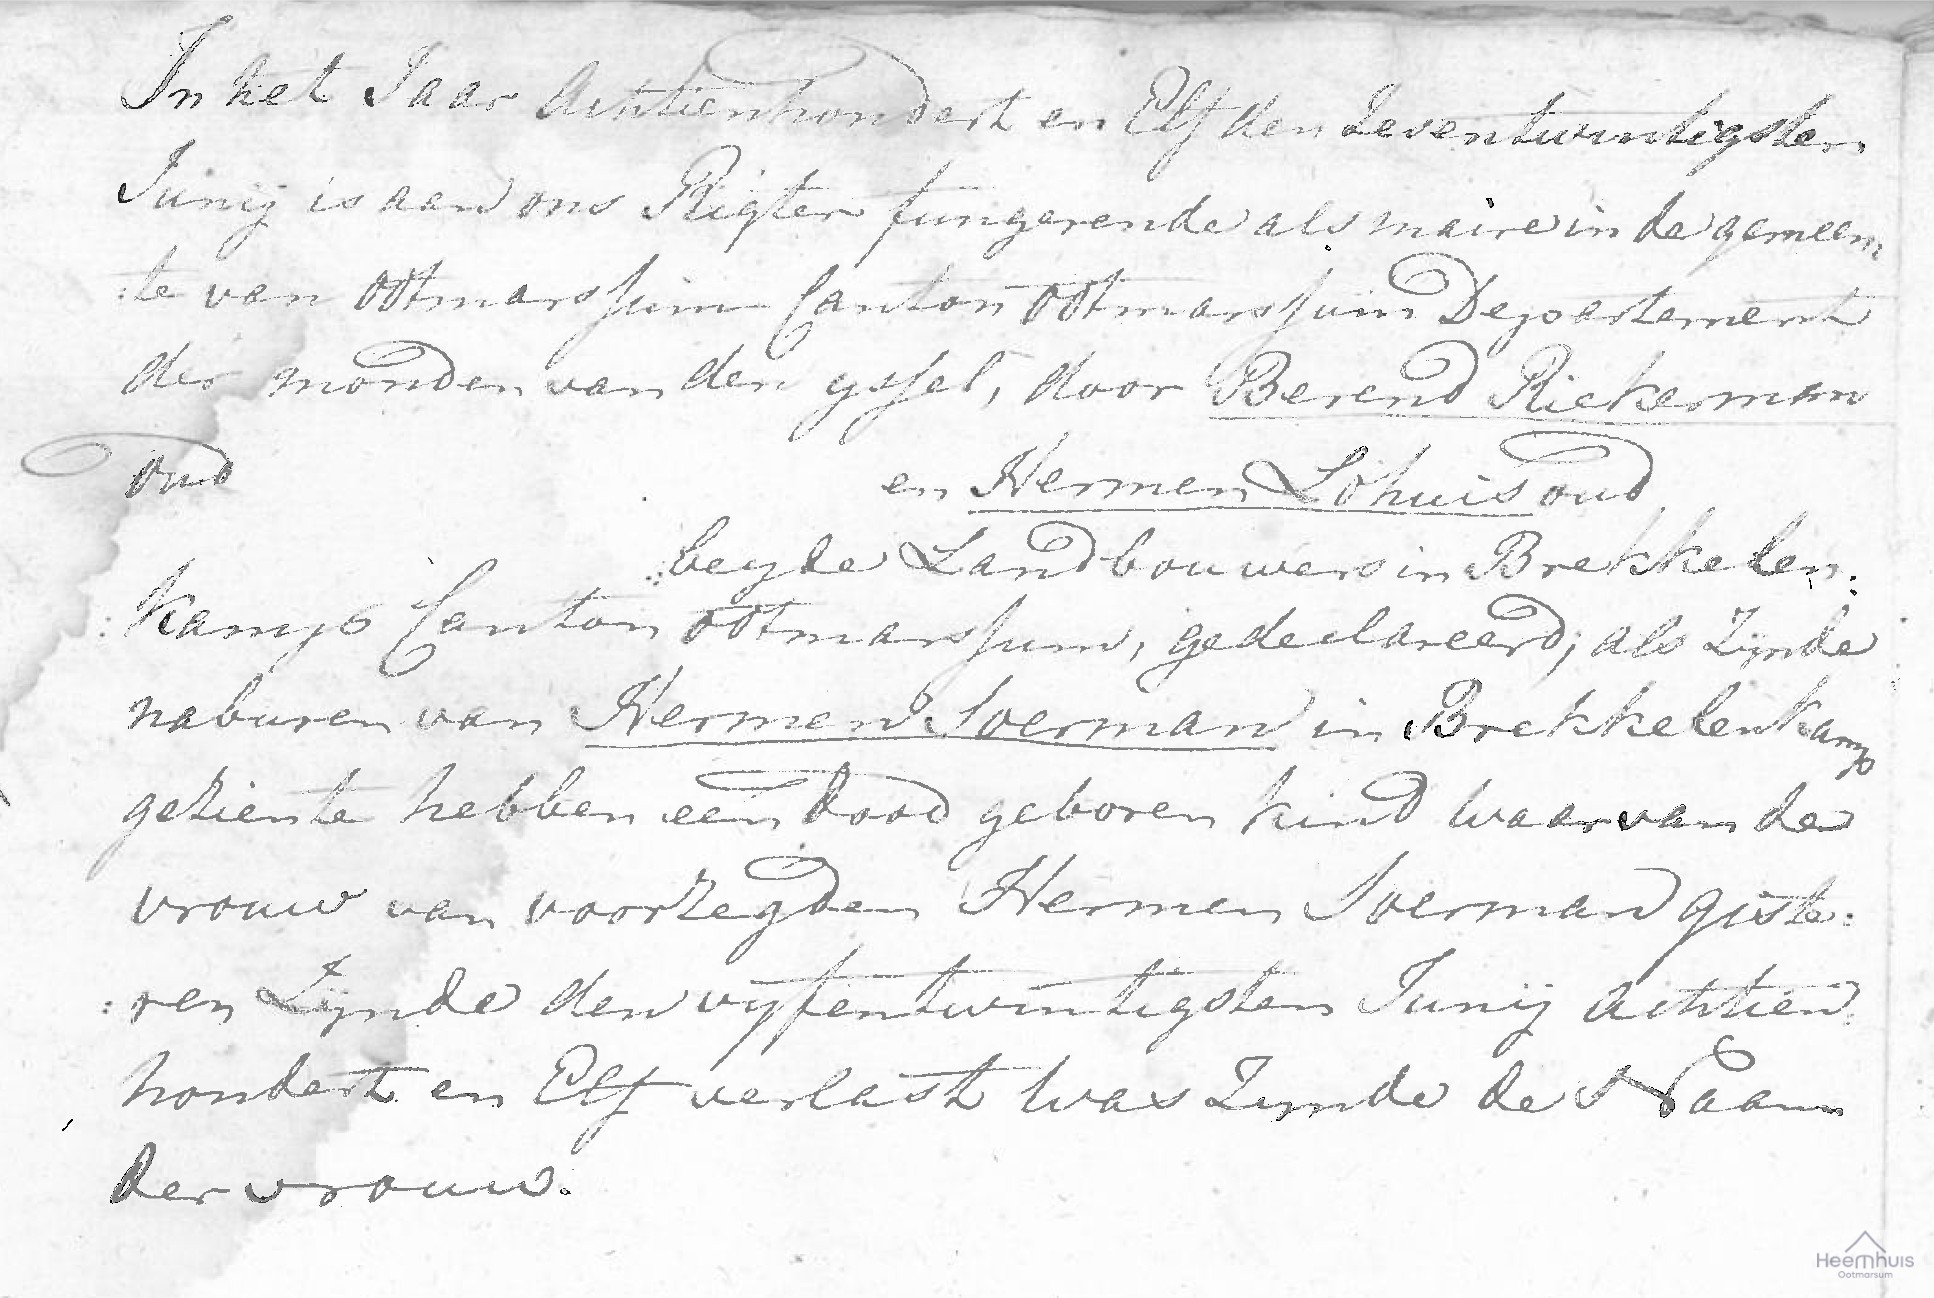 In het Jaar Achtienhondert en Elf den Zeventwintigsten
Junij is aan ons Rigter fungerende als maire in de gemeen
:te van Ootmarssum Canton Ootmarssum Departement
der monden van den yssel, door Berend Riekerman
oud en Hermen Lohuis oud
beyde Landbouwers in Brekkelen:
:kamp Canton Ootmarssum, gedeclareerd, als Zynde
naburen van Hermen Soerman in Brekkelenkamp
geziente hebben een dood geboren kind waarvan de
vrouw van voorzegden Hermen Soerman giste:
:ren Zynde den vyfentwintigsten Junij Achtien
hondert en Elf verlast was Zynde de Naam
der vrouw.
Heemhuis
Ootmarsum